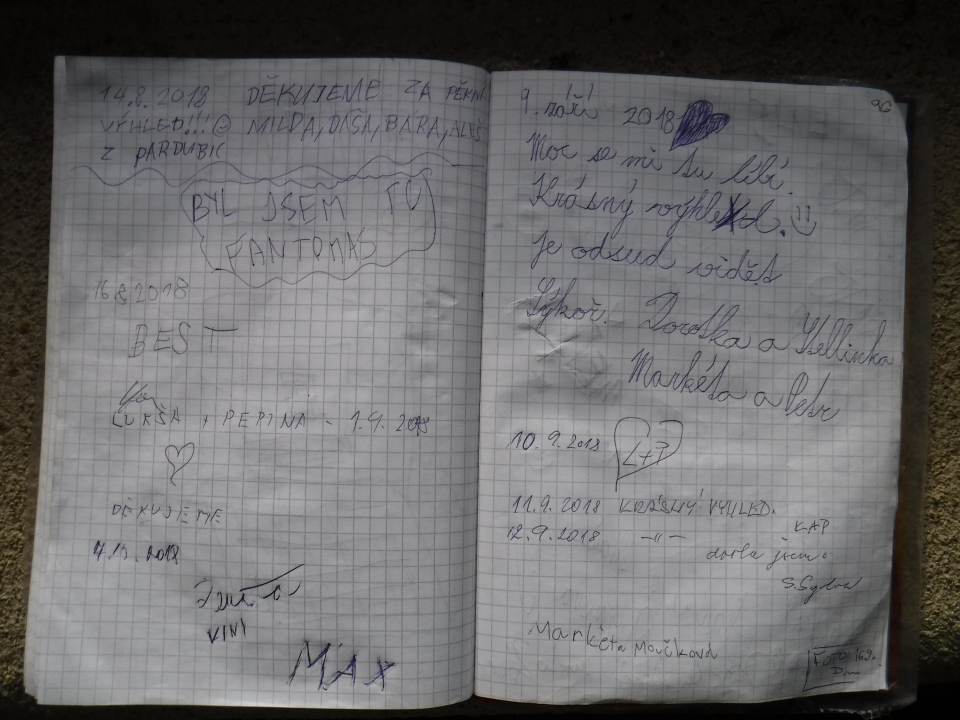 14.8.2018 DĚKUJEME ZA PĚKNÝ
VÝHLED!!! MILDA, DÁŠA, BÁRA, ALEŠ
Z PARDUBIC
BYL JSEM TU
FANTOMAS
16.8.2018
BEST
LUKŠA + PEPINA - 1.9. 2018
DĚKUJEME
VINI
MAX
90
9. září 2018
Moc se mi tu líbí.
Krásný výhled.
Je odsud vidět
Sýkoř. Dorotka a Stellinka
Markéta a Petr
10.9.2018 L+?
11.9.2018 KRÁSNÝ VÝHLED.
12.9.2018 -"- KAP
došla jsem.
Markéta
FOTO 16.9.